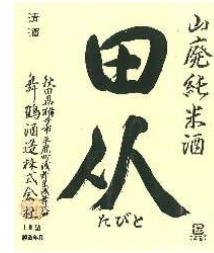 山廃純米酒
田从
たびと
清酒
秋田県横手市平鹿町浅舞字浅舞
舞鶴酒造株式会社